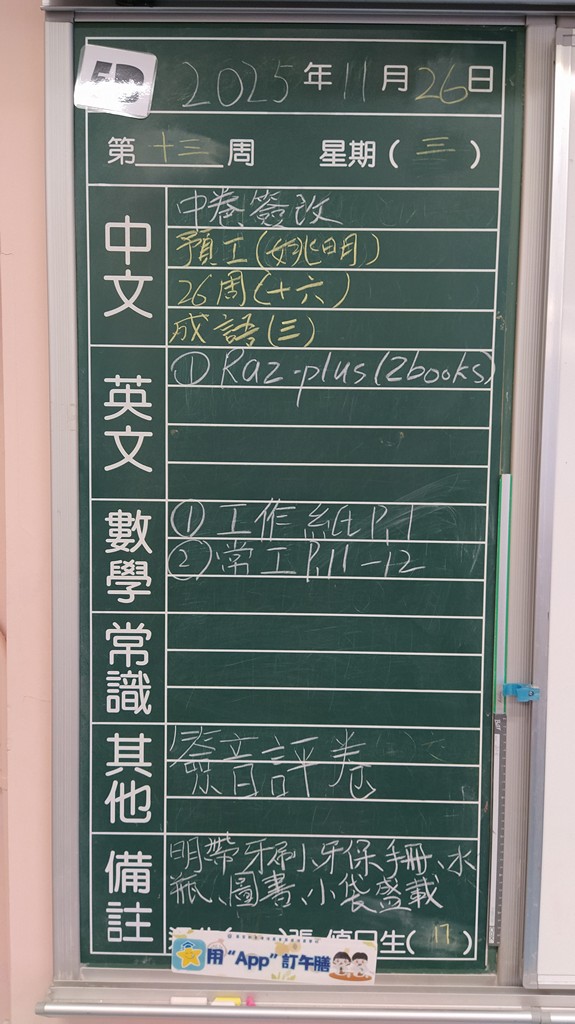 5D
2025年11月26日
第十三周 星期(三)
中文
中卷簽改
預工(姚明)
26周(十六)
成語(三)
英文
① Raz-plus(2books)
數學
① 工作紙P.1
② 常工P.11-12
常識
其他
簽音評卷
備註
明帶牙刷、牙保手冊、水
瓶、圖書、小袋盛載
值日生(17)
用“App”訂午膳